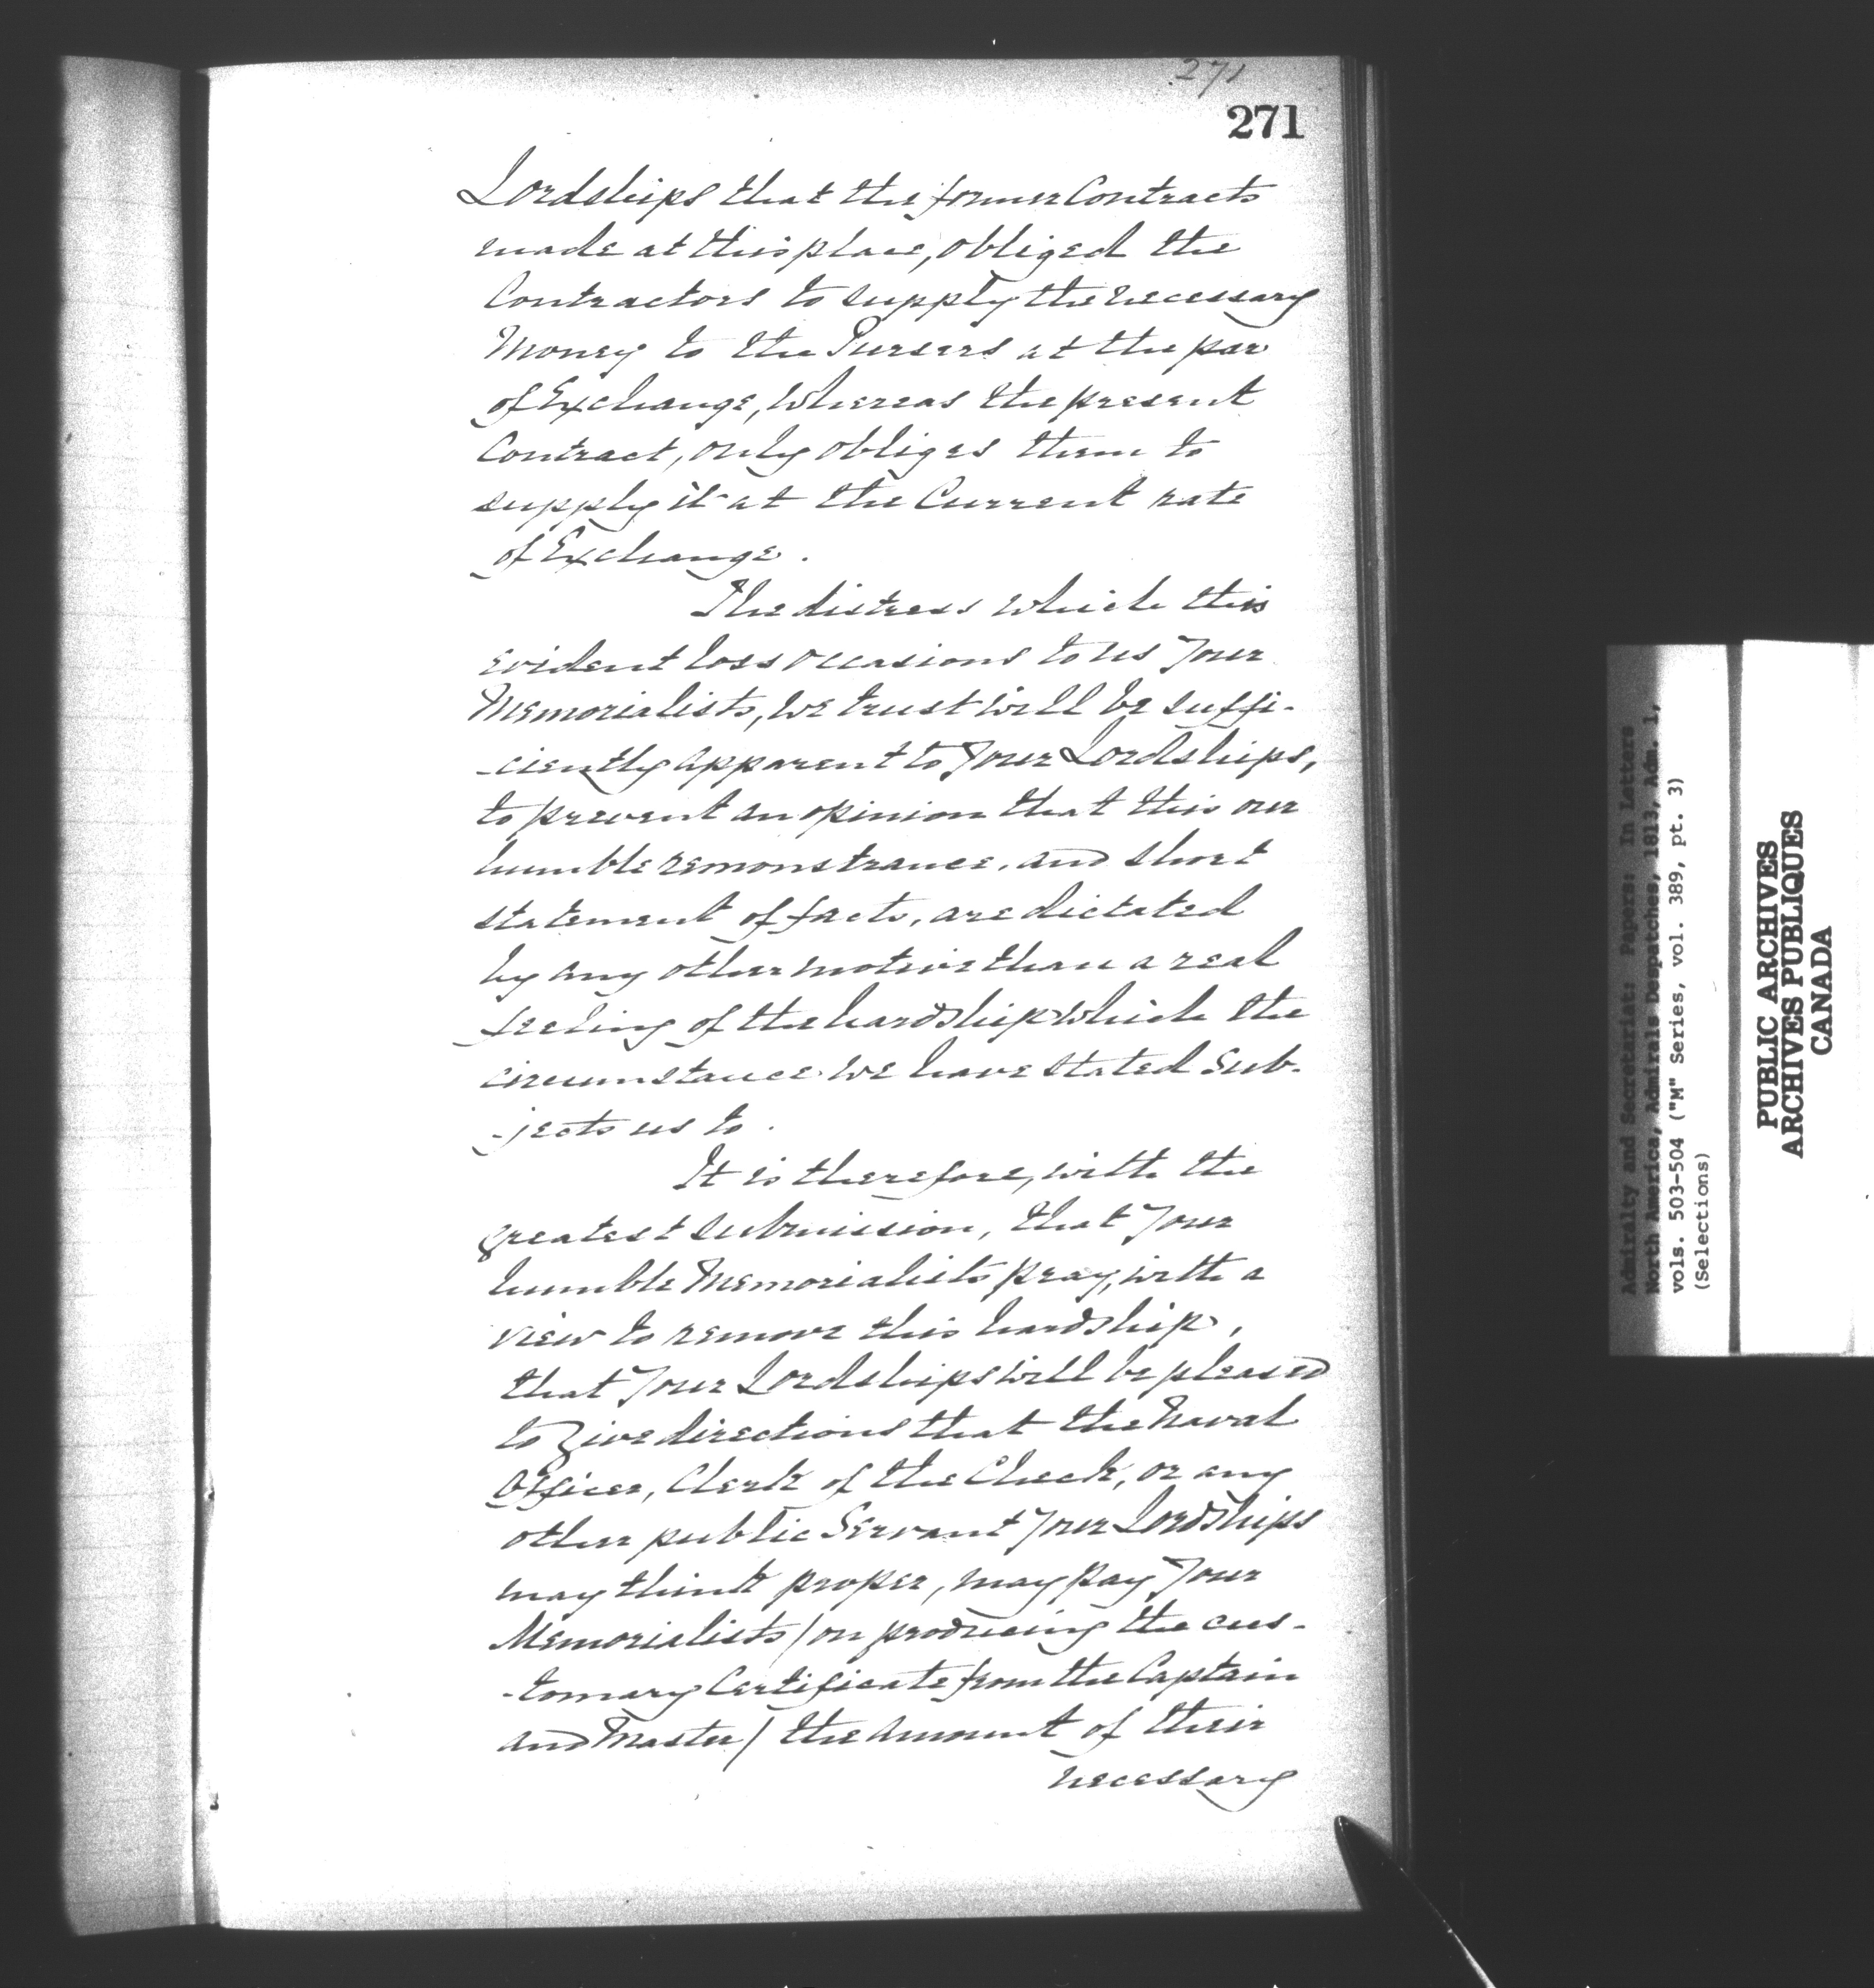 271
271
Lordships that the former Contracts
made at this place, obliged the
Contractors to supply the necessary
Money to the Pursers at the par
of Exchange, whereas the present
Contract, only obliges them to
supply it at the Current rate
of Exchange.
The distress which this
evident loss occasions to us Your
Memorialists, we trust will be suffi-
-ciently apparent to Your Lordships,
to prevent an opinion that this our
humble remonstrance, and short
statement of facts, are dictated
by any other motive than a real
feeling of the hardship which the
circumstance we have stated Sub-
-jects us to.
It is therefore, with the
greatest submission, that Your
humble Memorialists pray, with a
view to remove this hardship,
that Your Lordships will be pleased
to give directions that the Naval
Officer, Clerk of the Check, or any
other public Servant Your Lordships
may think proper, may pay Your
Memorialists (on producing the cus-
-tomary Certificate from the Captain
and Master) the amount of their
necessary
Admiralty and Secretariat: Papers: In Letters
North America, Admirals Despatches, 1813, Adm. 1,
vols. 503-504 ("M" Series, vol. 389, pt. 3)
(Selections)
PUBLIC ARCHIVES
ARCHIVES PUBLIQUES
CANADA